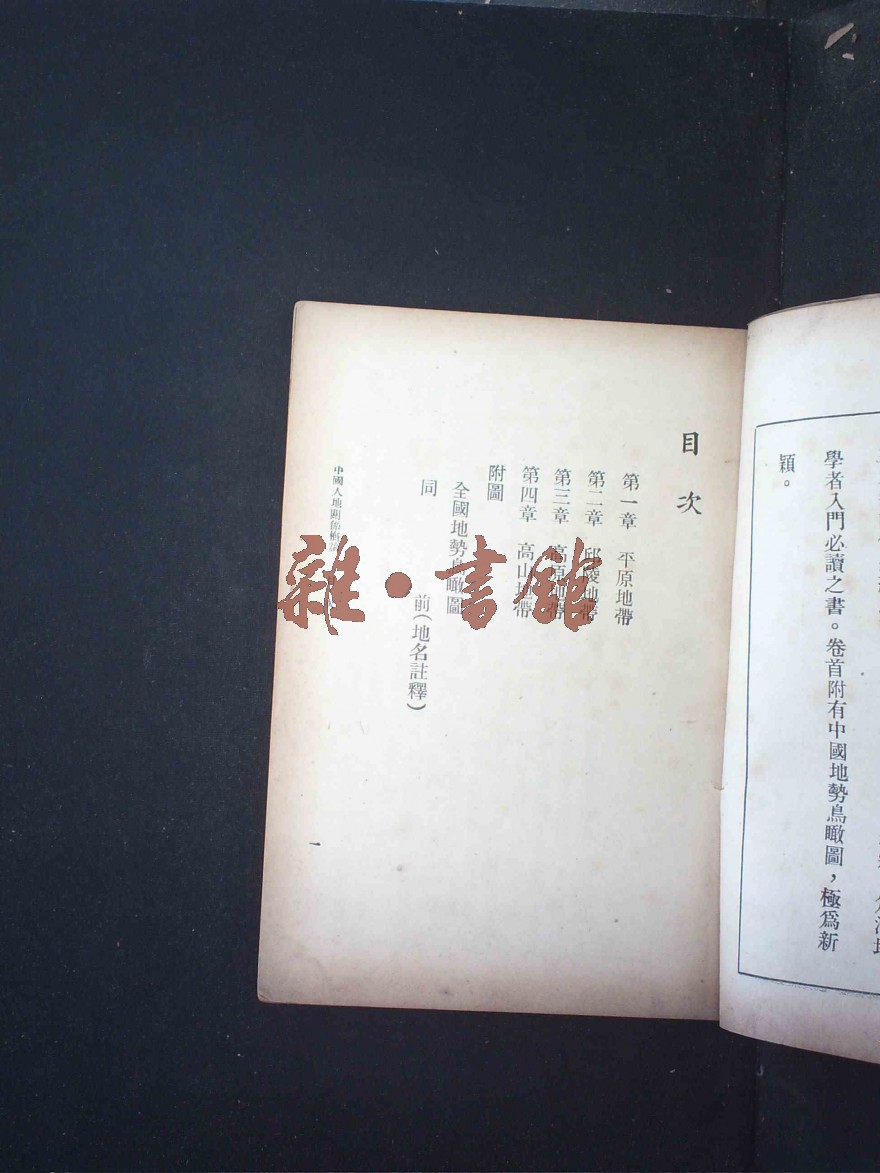 學者入門必讀之書。卷首附有中國地勢鳥瞰圖，極爲新
穎。
目次
第一章 平原地帶
第二章 邱陵地帶
第三章 高原地帶
第四章 高山地帶
附圖
全國地勢鳥瞰圖
同 前（地名註釋）
中國人地關係概論
一
雜·書館